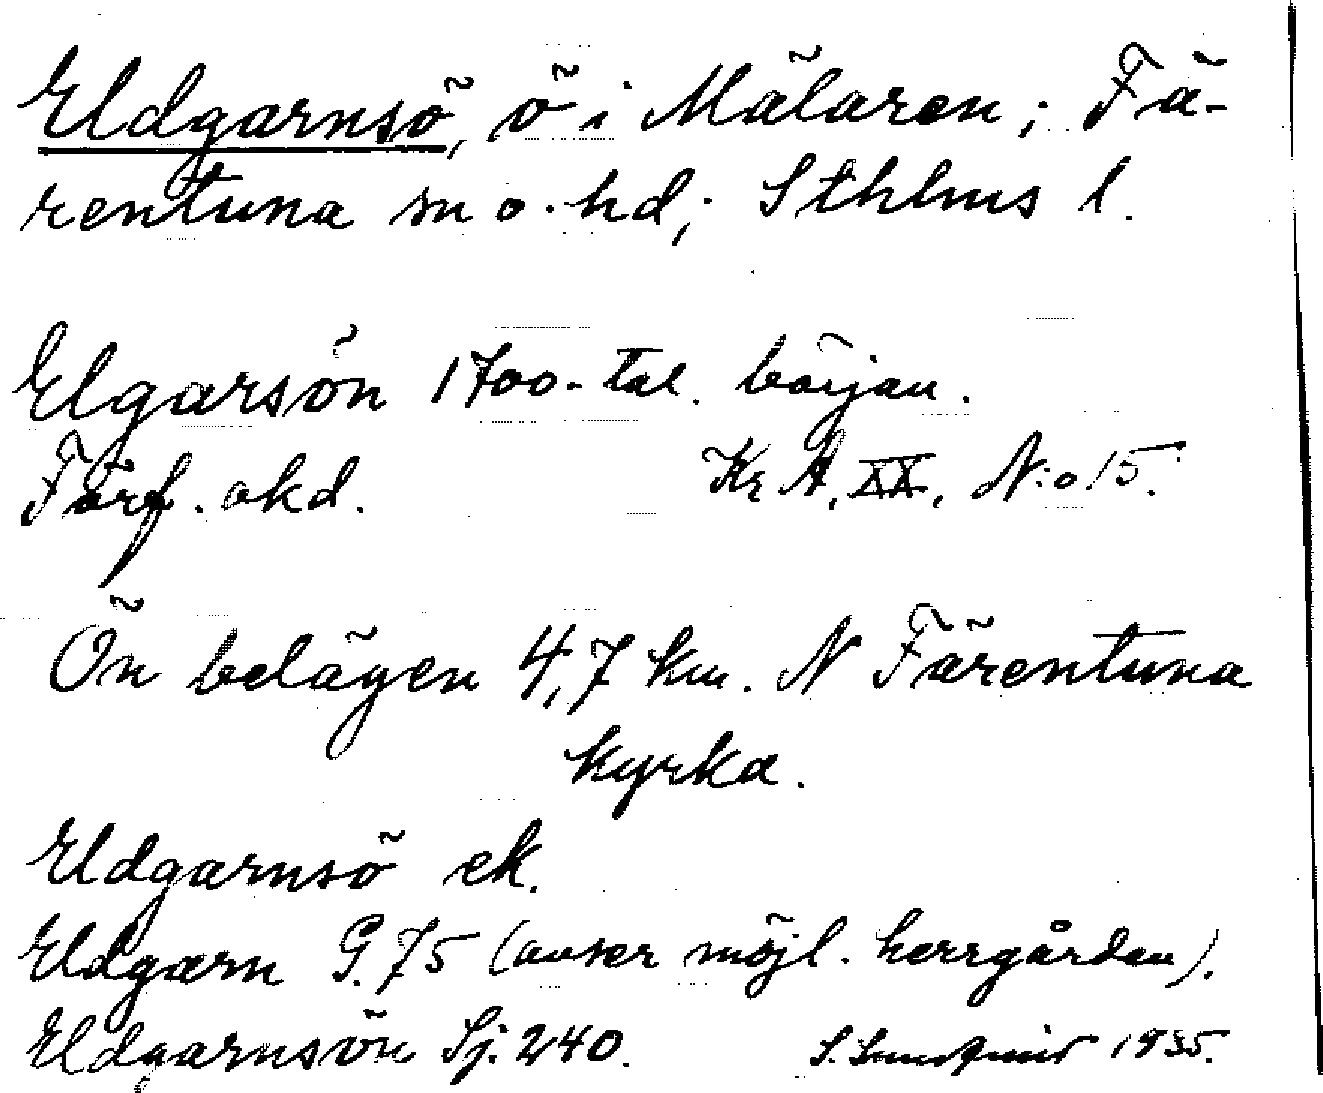 Eldgarnsö, ö i Mälaren; Fä-
rentuna sn o. hd; Sthlms l.
Elgarsön 1700-tal. början.
Förf. okd. Kr A, XX, N:o 15.
Ön belägen 4,7 km. N Färentuna
kyrka.
Eldgarnsö ek.
Eldgarn G. 75 (avser möjl. herrgården).
Eldgarnsön Sj. 240. S. Lundqvist 1935.